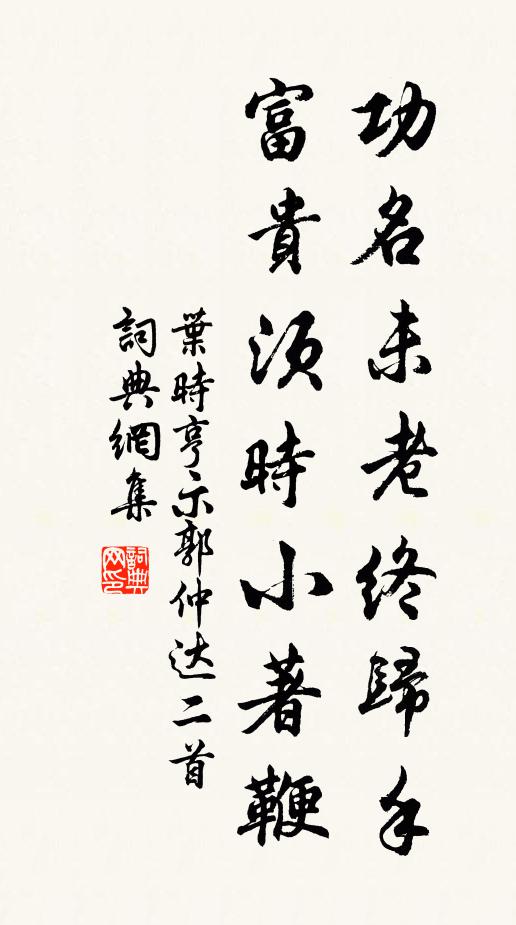 功名未老終歸手
富貴須時小著鞭
葉時亨示郭仲达二首
詞典網集
詞典網印